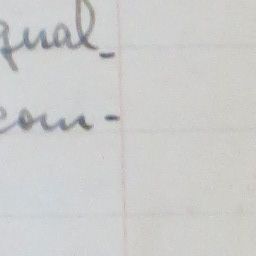 qual-
com-